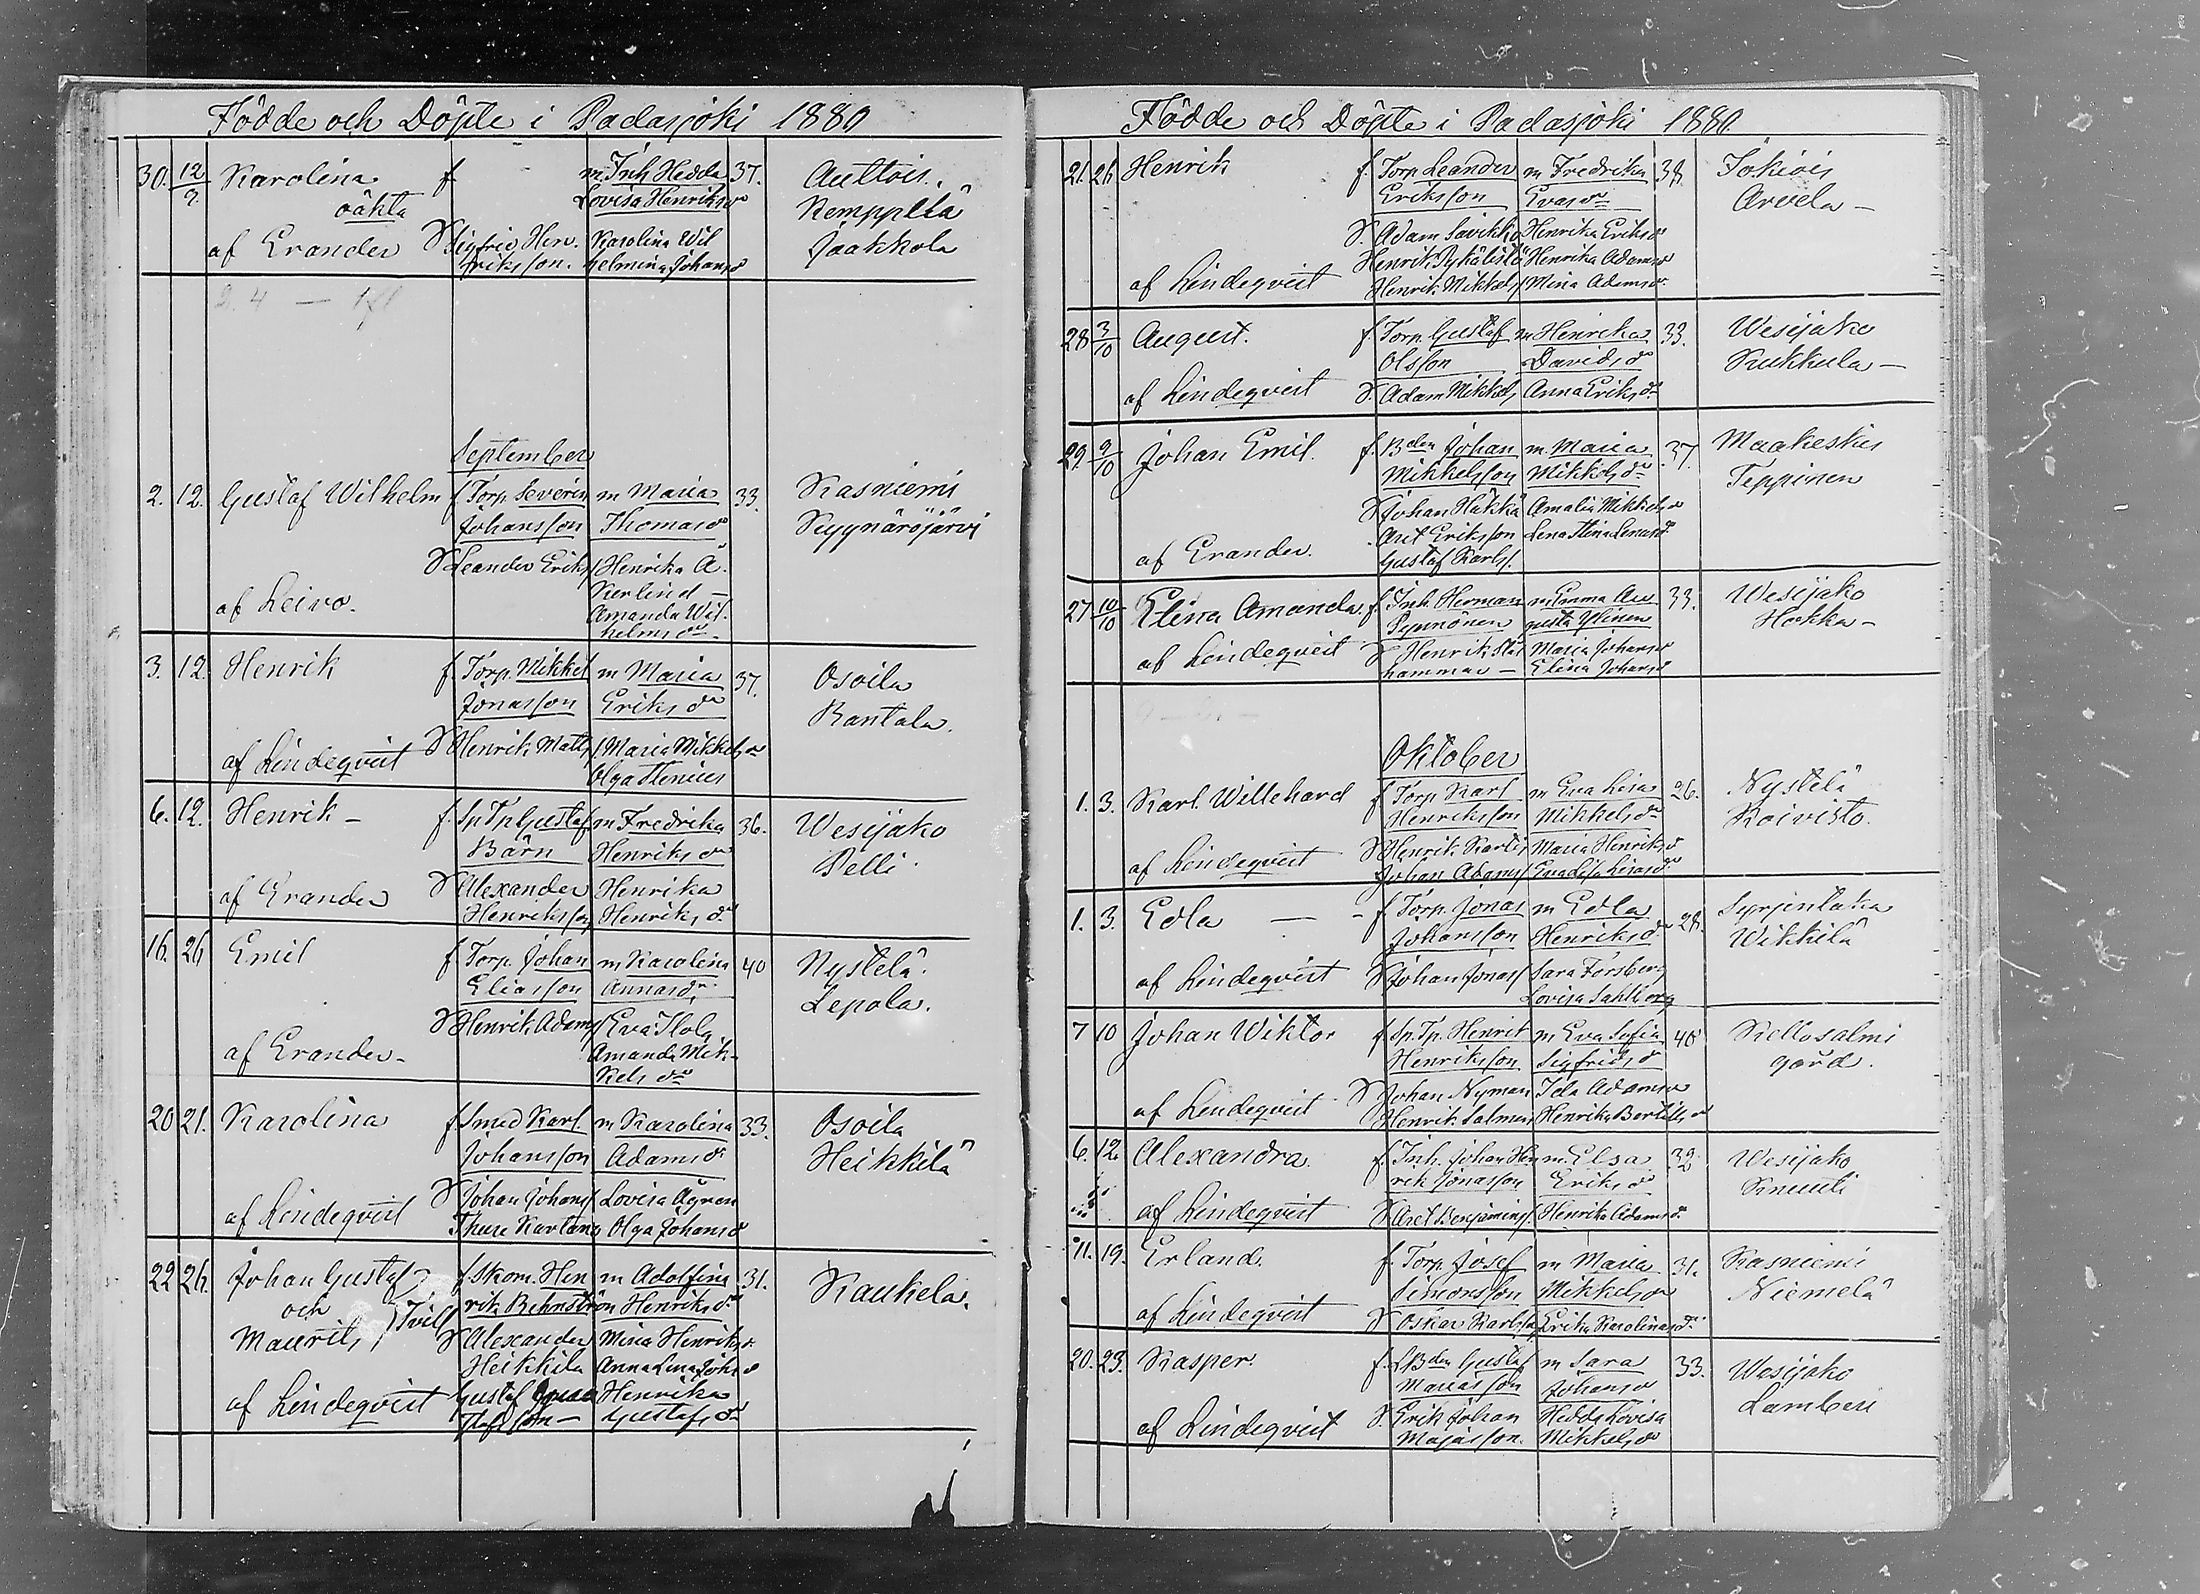 Födde och Döpte i Padasjoki 1880
30. 12/9 Karolina f m Inh Hedda 37. Auttois.
oäkta Lovisa Henriksdr Kemppilä
af Erander S Sigfrid Hen. Karolina Wil Jaakkola
riksson. helmina Johansd
September
2. 12. Gustaf Wilhelm f Torp. Severin m Maria 33. Kasniemi
Johansson Thomasdr Kyynäröjärvi
S Leander Eriks Henrika A.
Kerlind
af Leivo. Amanda Wil
helmsdr
3. 12. Henrik f. Torp. Mikkel m Maria 37. Osoila
Jonasson Eriksdr Rantala.
af Lindeqvist S Henrik Matts Maria Mikkelsdr
Olga Stenius
6. 12. Henrik – f. Sp Tp Gustaf m Fredrika 36. Wesijako
Bärn Henriksdr Pelli.
af Erander S Alexander Henrika
Henriksson Henriksdr
16. 26 Emil f. Torp. Johan m Karolina 40 Nystelä.
Eliasson Annasdr Lepola.
S Henrik Adams Eva
af Erander – Amanda Mik-
kelsdr
20 21. Karolina f Smed Karl m Karolina 33. Osoila
Johansson Adamsdr Heikkilä
S Johan Johans Lovisa Ågren
af Lindeqvist Thure Karlang Olga Johansd
22 26. Johan Gustaf f Skom. Hen m Adolfina 31. Kaukela.
och Tvill rik Rehnström Henriksdr
Maurits S Alexander Mina Henriksdr
Heikkila Anna Lena Johsd
af Lindeqvist Gustaf Henrika
son – Gustafsdr
Födde och Döpte i Padasjoki 1880.
21. 26 Henrik f. Torp Leander m Fredrika 38. Jokiois
Eriksson Evasdr Arvela –
S. Adam Savikko Henrika Eriksdr
Henrik Pykälistö Henrika Adamsdr
af Lindeqvist Henrik Mikkels Mina Adamsdr
28 3/10 August. f. Torp. Gustaf m Henrika 33. Wesijako
Olsson Davidsdr Kukkula –
af Lindeqvist S. Adam Mikkels Anna Eriksdr
29. 9/10 Johan Emil. f. Bden Johan m. Maria 37. Maakeskis
Mikkelsson Mikkelsdr Teppinen
S Johan Häkkä Amalia Mikkelsdr
Axel Eriksson Lena Stina Lenasdr
af Erander. Gustaf Karls.
27. 10/10 Elina Amanda. f. Inh. Herman m. Emma Au 33. Wesijako
Pynnönen gusta Ylinen Hokka –
af Lindeqvist S Henrik Stål Maria Johansdr
hammar – Elina Johansd
Oktober
1. 3. Karl Willehard f Torp Karl m Eva Lisa 26. Nystelä
Henriksson Mikkelsdr Koivisto.
S Henrik Karls Maria Henriksdr
af Lindeqvist Johan Adams
1. 3. Edla – f Torp. Jonas m Edla 28. Syrjentaka
Johansson Henriksd. Wikkilä
af Lindeqvist S Johan Jonass Sara Forsberg
Lovisa Sahlberg
7 10 Johan Wiktor f Sp. Tp. Henrik m Eva Sofia 40 Kellosalmi
Henriksson Sigfridsdr gård.
S Johan Nyman Ida Adamsdr
af Lindeqvist Henrik Salmen Henrika Bertilsdr
6. 12. Alexandra. f. Inh. Johan Hen m. Elsa 32 Wesijako
rik Jonasson Eriksdr Knuuti
af Lindeqvist S Axel Benjamins. Henrika Adamsdr
11. 19. Erland. f. Torp Josef m Maria 31. Kasniemi
Simonsson Mikkelsdr Niemelä
af Lindeqvist S Oskar Karlss Erika Karolinasdr
20. 23. Kasper. f. Bden Gustaf m Sara 33. Wesijako
Mariasson Johansdr Lamberi
S. Erik Johan Hedda Lovisa
af Lindeqvist Majasson. Mikkelsdr